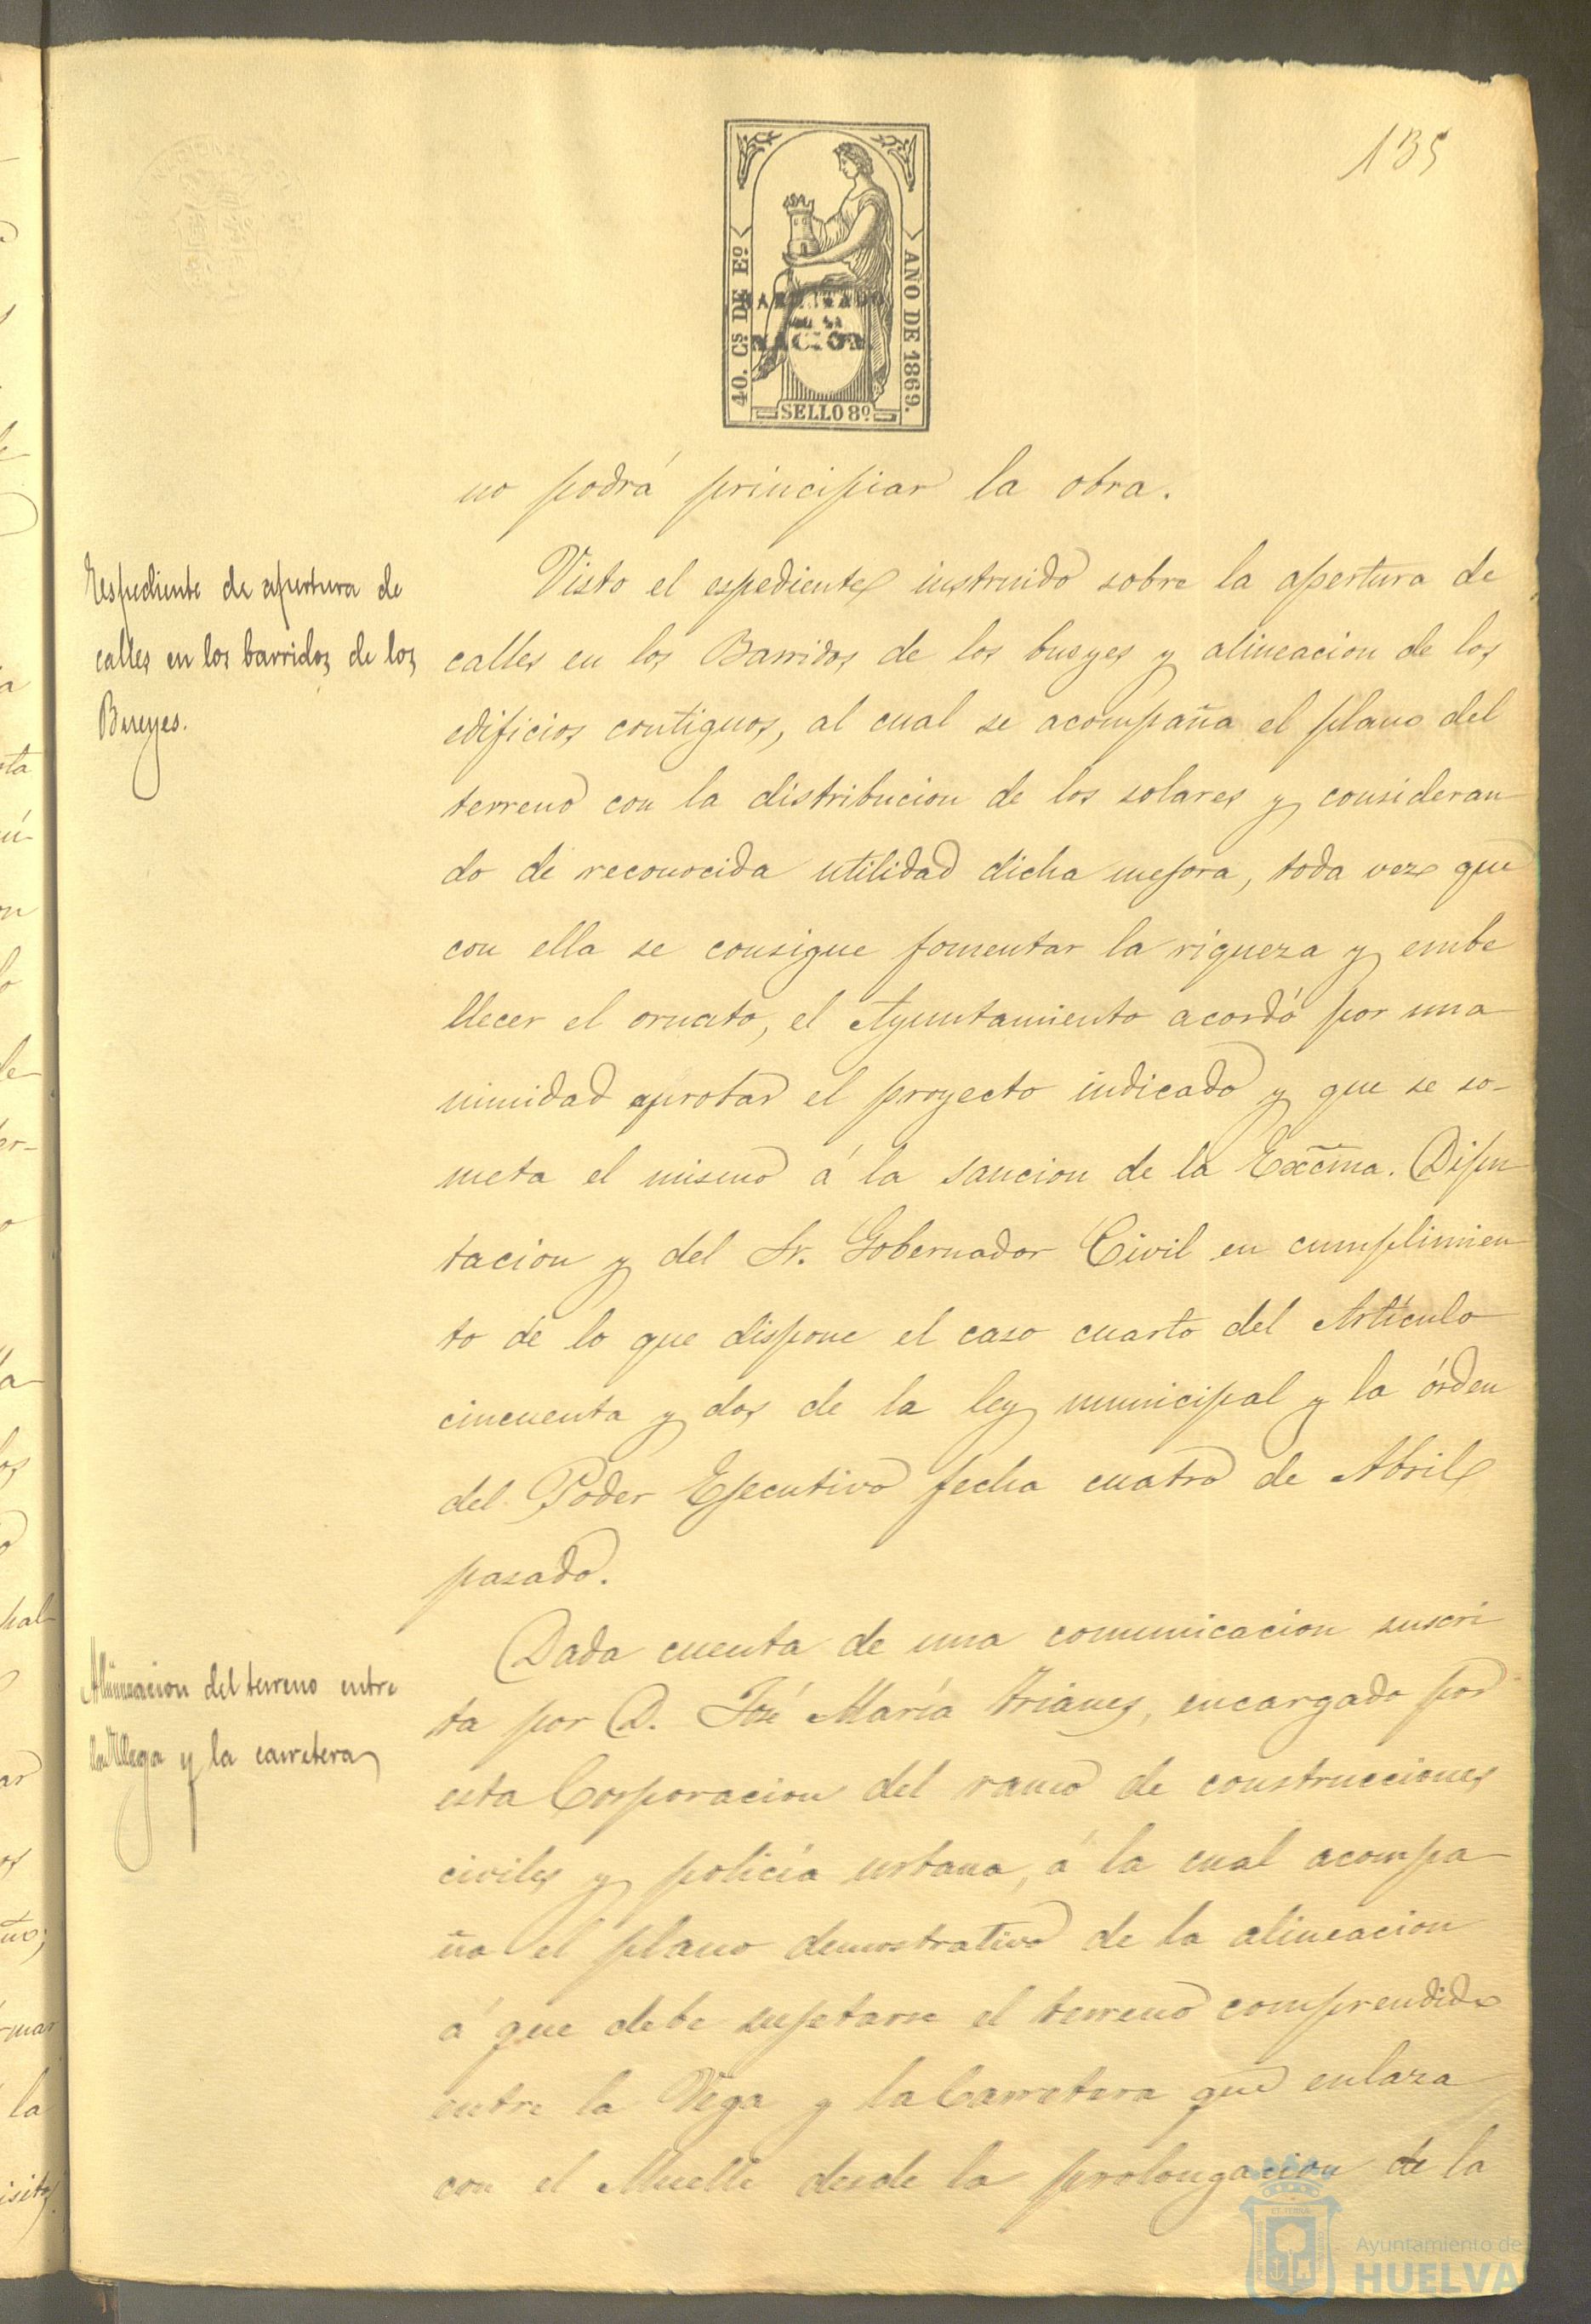 135
40. Cs DE Eº
AÑO DE 1869.
HABILITADO
POR LA
NACION.
SELLO 8º
no podrá principiar la obra.
Espediente de apertura de
calles en los barridos de los
Bueyes.
Visto el espediente instruido sobre la apertura de
calles en los Barridos de los bueyes y alineacion de los
edificios contiguos, al cual se acompaña el plano del
terreno con la distribucion de los solares y consideran
do de reconocida utilidad dicha mejora, toda vez que
con ella se consigue fomentar la riqueza y embe
llecer el ornato, el Ayuntamiento acordó por una
nimidad aprobar el proyecto indicado y que se so-
meta el mismo á la sancion de la Excma. Dipu
tacion y del Sr. Gobernador Civil en cumplimien
to de lo que dispone el caso cuarto del Artículo
cincuenta y dos de la ley municipal y la órden
del Poder Ejecutivo fecha cuatro de Abril
pasado.
Alineacion del terreno entre
la Vega y la carretera
Dada cuenta de una comunicacion suscri
ta por D. José María Trianes, encargado por
esta Corporacion del ramo de construcciones
civiles y policía urbana, á la cual acompa
ña el plano demostrativo de la alineacion
á que debe sujetarse el terreno comprendido
entre la Vega y la Carretera que enlaza
con el Muelle desde la prolongacion de la
Ayuntamiento de
HUELVA